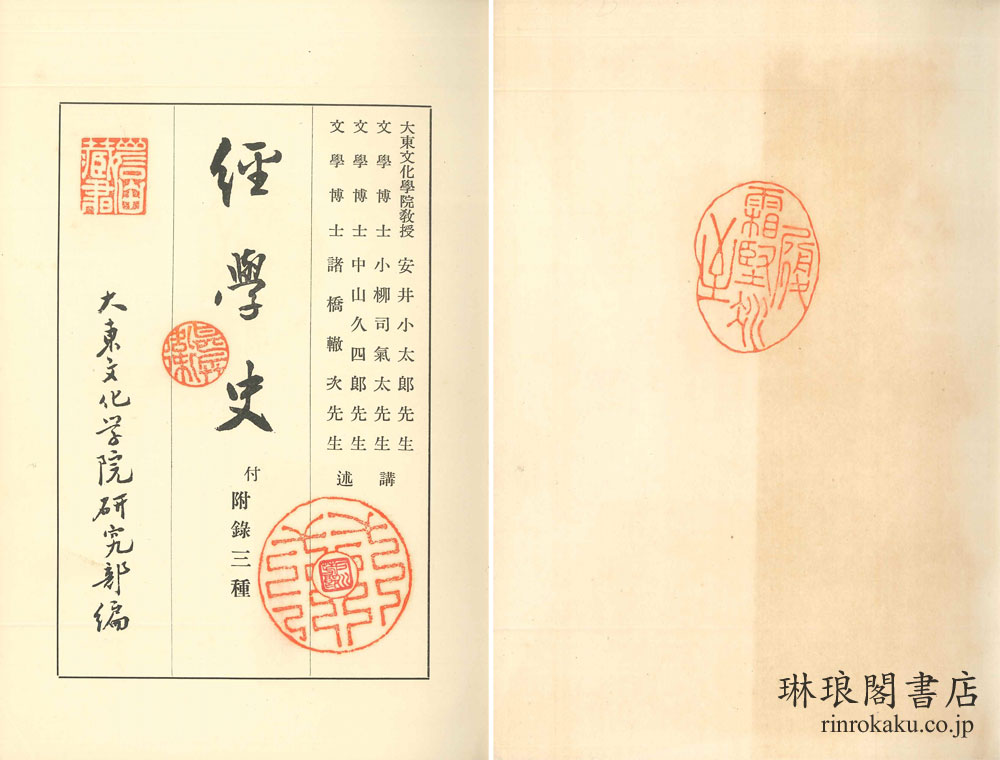 大東文化學院教授 安井小太郎先生
文學博士 小柳司氣太先生 講
文學博士 中山久四郎先生
文學博士 諸橋轍次先生 述
經學史
付
附錄三種
大東文化学院研究部編
藏書
履霜堅冰至
琳琅閣書店
rinrokaku.co.jp